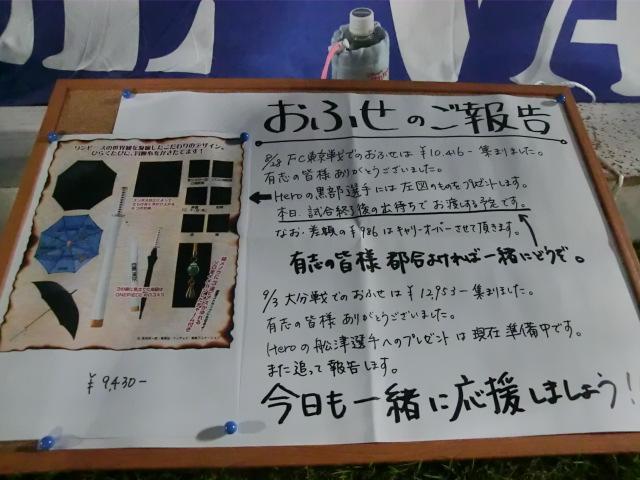 おふせのご報告
8/28 FC東京戦でのおふせは ¥10,416- 集まりました。
有志の皆様 ありがとうございました。
← Heroの黒部選手には 左図のものをプレゼントします。
本日、試合終了後の出待ちで お渡しする予定です。
なお、差額の ¥986 は キャリーオーバーさせて頂きます。
有志の皆様 都合よければ一緒にどうぞ。
9/3 大分戦でのおふせは ¥12,953- 集まりました。
有志の皆様 ありがとうございました。
Heroの船津選手へのプレゼントは 現在 準備中です。
また追って報告します。
今日も一緒に応援しましょう!
ワンピースの世界観を凝縮したこだわりのデザイン。
ONE PIECE
¥9,430-